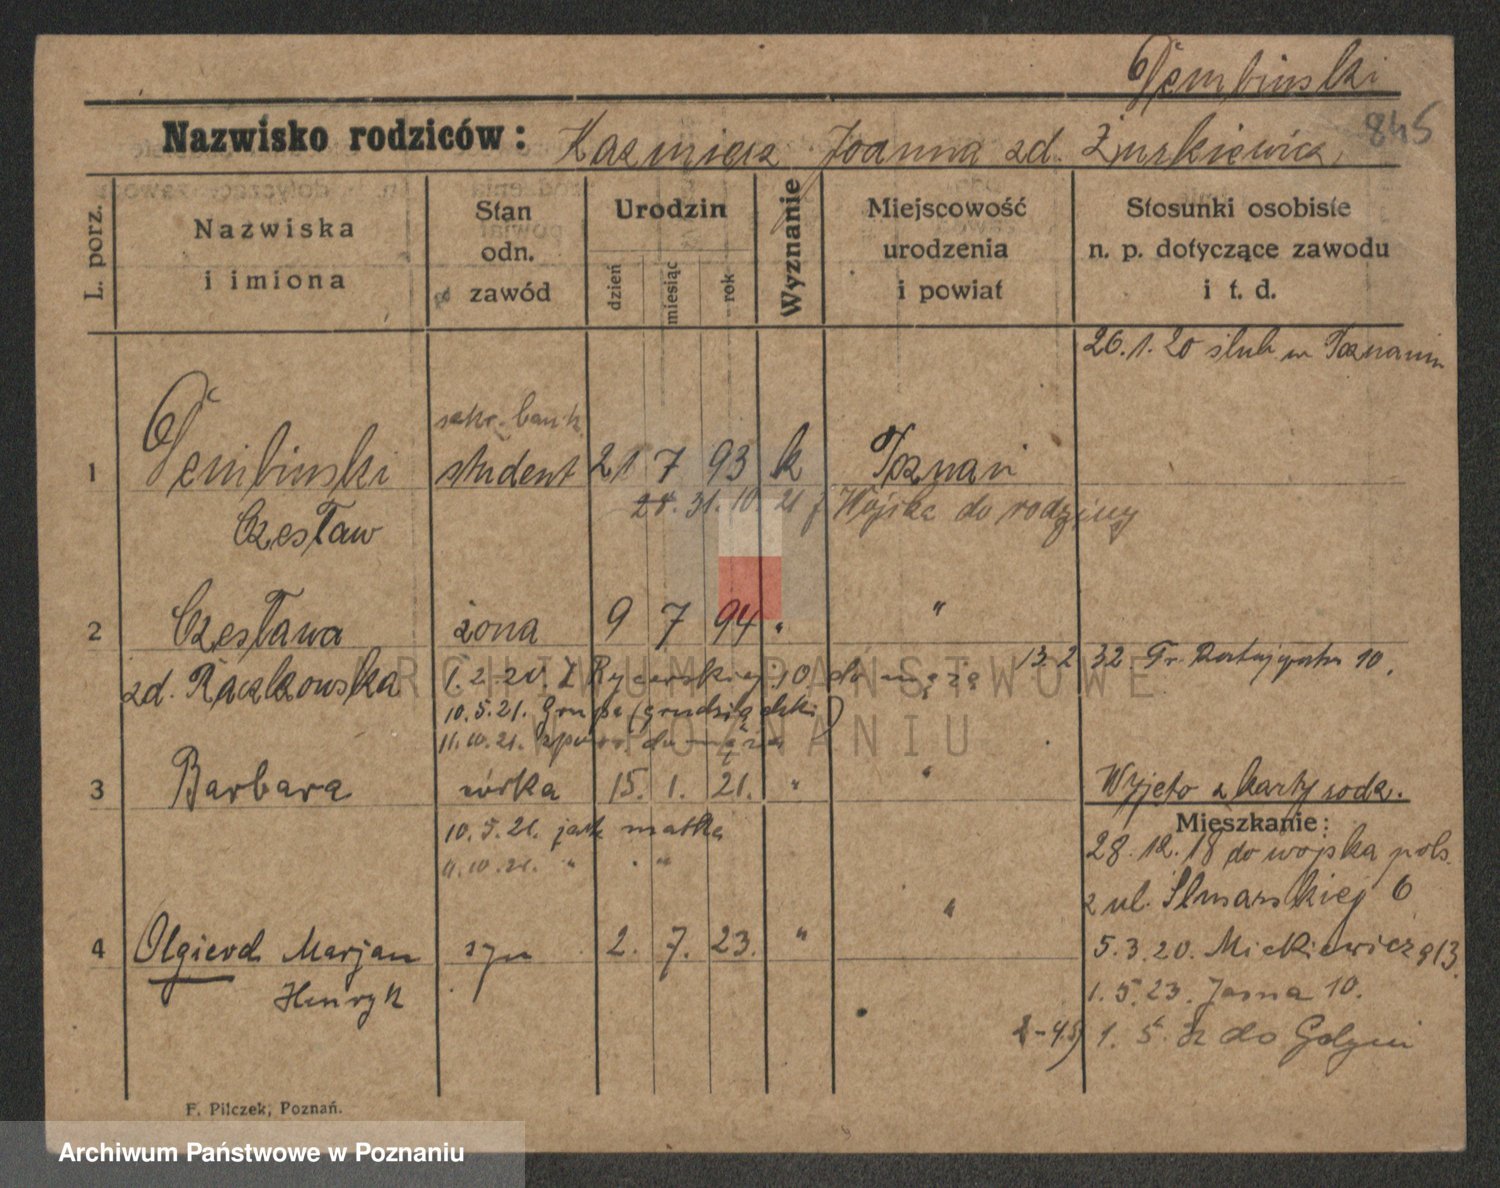 Dembinski
845
Nazwisko rodziców: Kazmierz Joanna zd. Żurkiewicz
L. porz.
Nazwiska i imiona
Stan odn. zawód
Urodzin
dzień
miesiąc
rok
Wyznanie
Miejscowość urodzenia i powiat
Stosunki osobiste n. p. dotyczące zawodu i t. d.
26.1.20 ślub w Poznaniu
sekr. bank.
1 Dembinski student 21 7 93 k Poznań
31.10.21 z Wojska do rodziny
Czesław
2 Czesława żona 9 7 94 " "
13.2.32 Pl. Ratajski 10.
zd. Raczkowska 1.2.20 z Rycerskiej 10 do męża
10.5.21. Grupa (grudziądzki)
11.10.21. do męża
3 Barbara córka 15. 1. 21. " "
Wyjęto z karty rodz.
10.5.21. jak matka
Mieszkanie:
11.10.21. " "
28.12.18 do wojska pols.
z ul. Ślusarskiej 6
4 Olgierd Marjan syn 2. 7. 23. " "
5.3.20. Mickiewicza 13.
Henryk
1.5.23. Jasna 10.
1.5. do Gdyni
F. Pilczek, Poznań.
ARCHIWUM PAŃSTWOWE
W POZNANIU
Archiwum Państwowe w Poznaniu